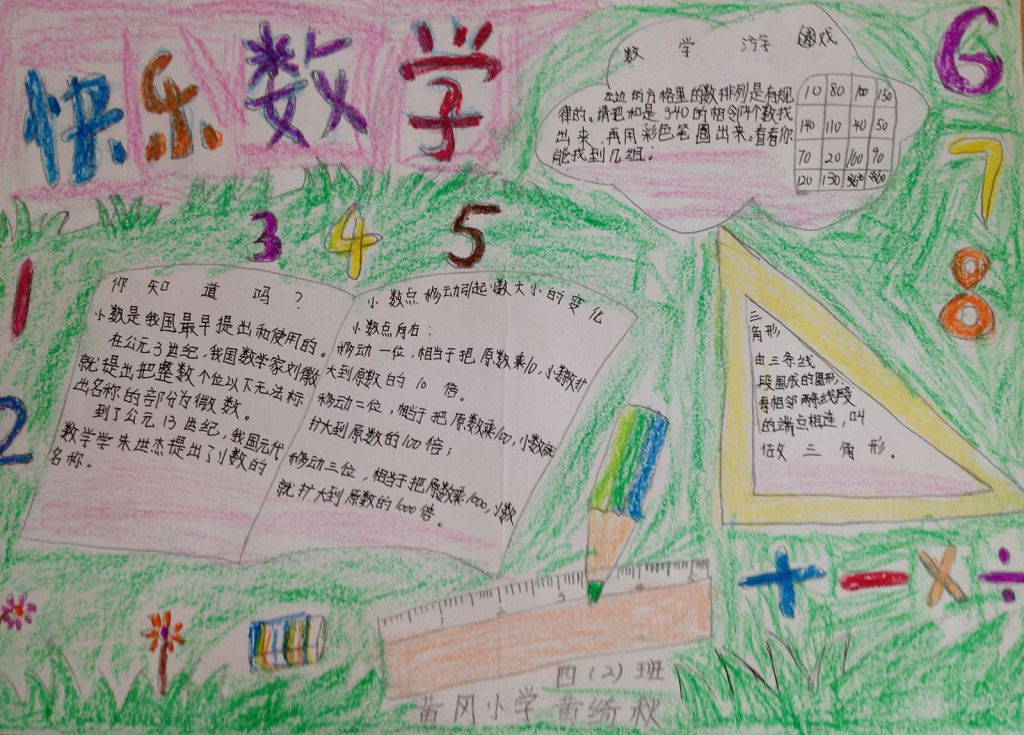 快乐数学
数学 游戏
左边的方格里的数排列是有规
律的。请把和是340的相邻4个数找
出来,再用彩色笔圈出来。看看你
能找到几组:
10 80 100 150
140 110 40 50
70 20 160 90
120 130
6
7
8
3 4 5
1
2
你知道吗?
小数是我国最早提出和使用的。
在公元3世纪,我国数学家刘徽
就提出把整数个位以下无法标
出名称的部分为微数。
到了公元13世纪,我国元代
数学学朱世杰提出了小数的
名称。
小数点移动引起小数大小的变化
小数点向右:
移动一位,相当于把原数乘10,小数就扩
大到原数的10倍。
移动二位,相于把原数乘100,小数就
扩大到原数的100倍;
移动三位,相当于把原数乘1000,小数
就扩大到原数的1000倍。
三
角形
由三条线
段围成的图形,
每相邻两条线段
的端点相连,叫
做 三 角 形.
+ - × ÷
1 2 3 4 5
四(2)班
黄冈小学 黄绮秋